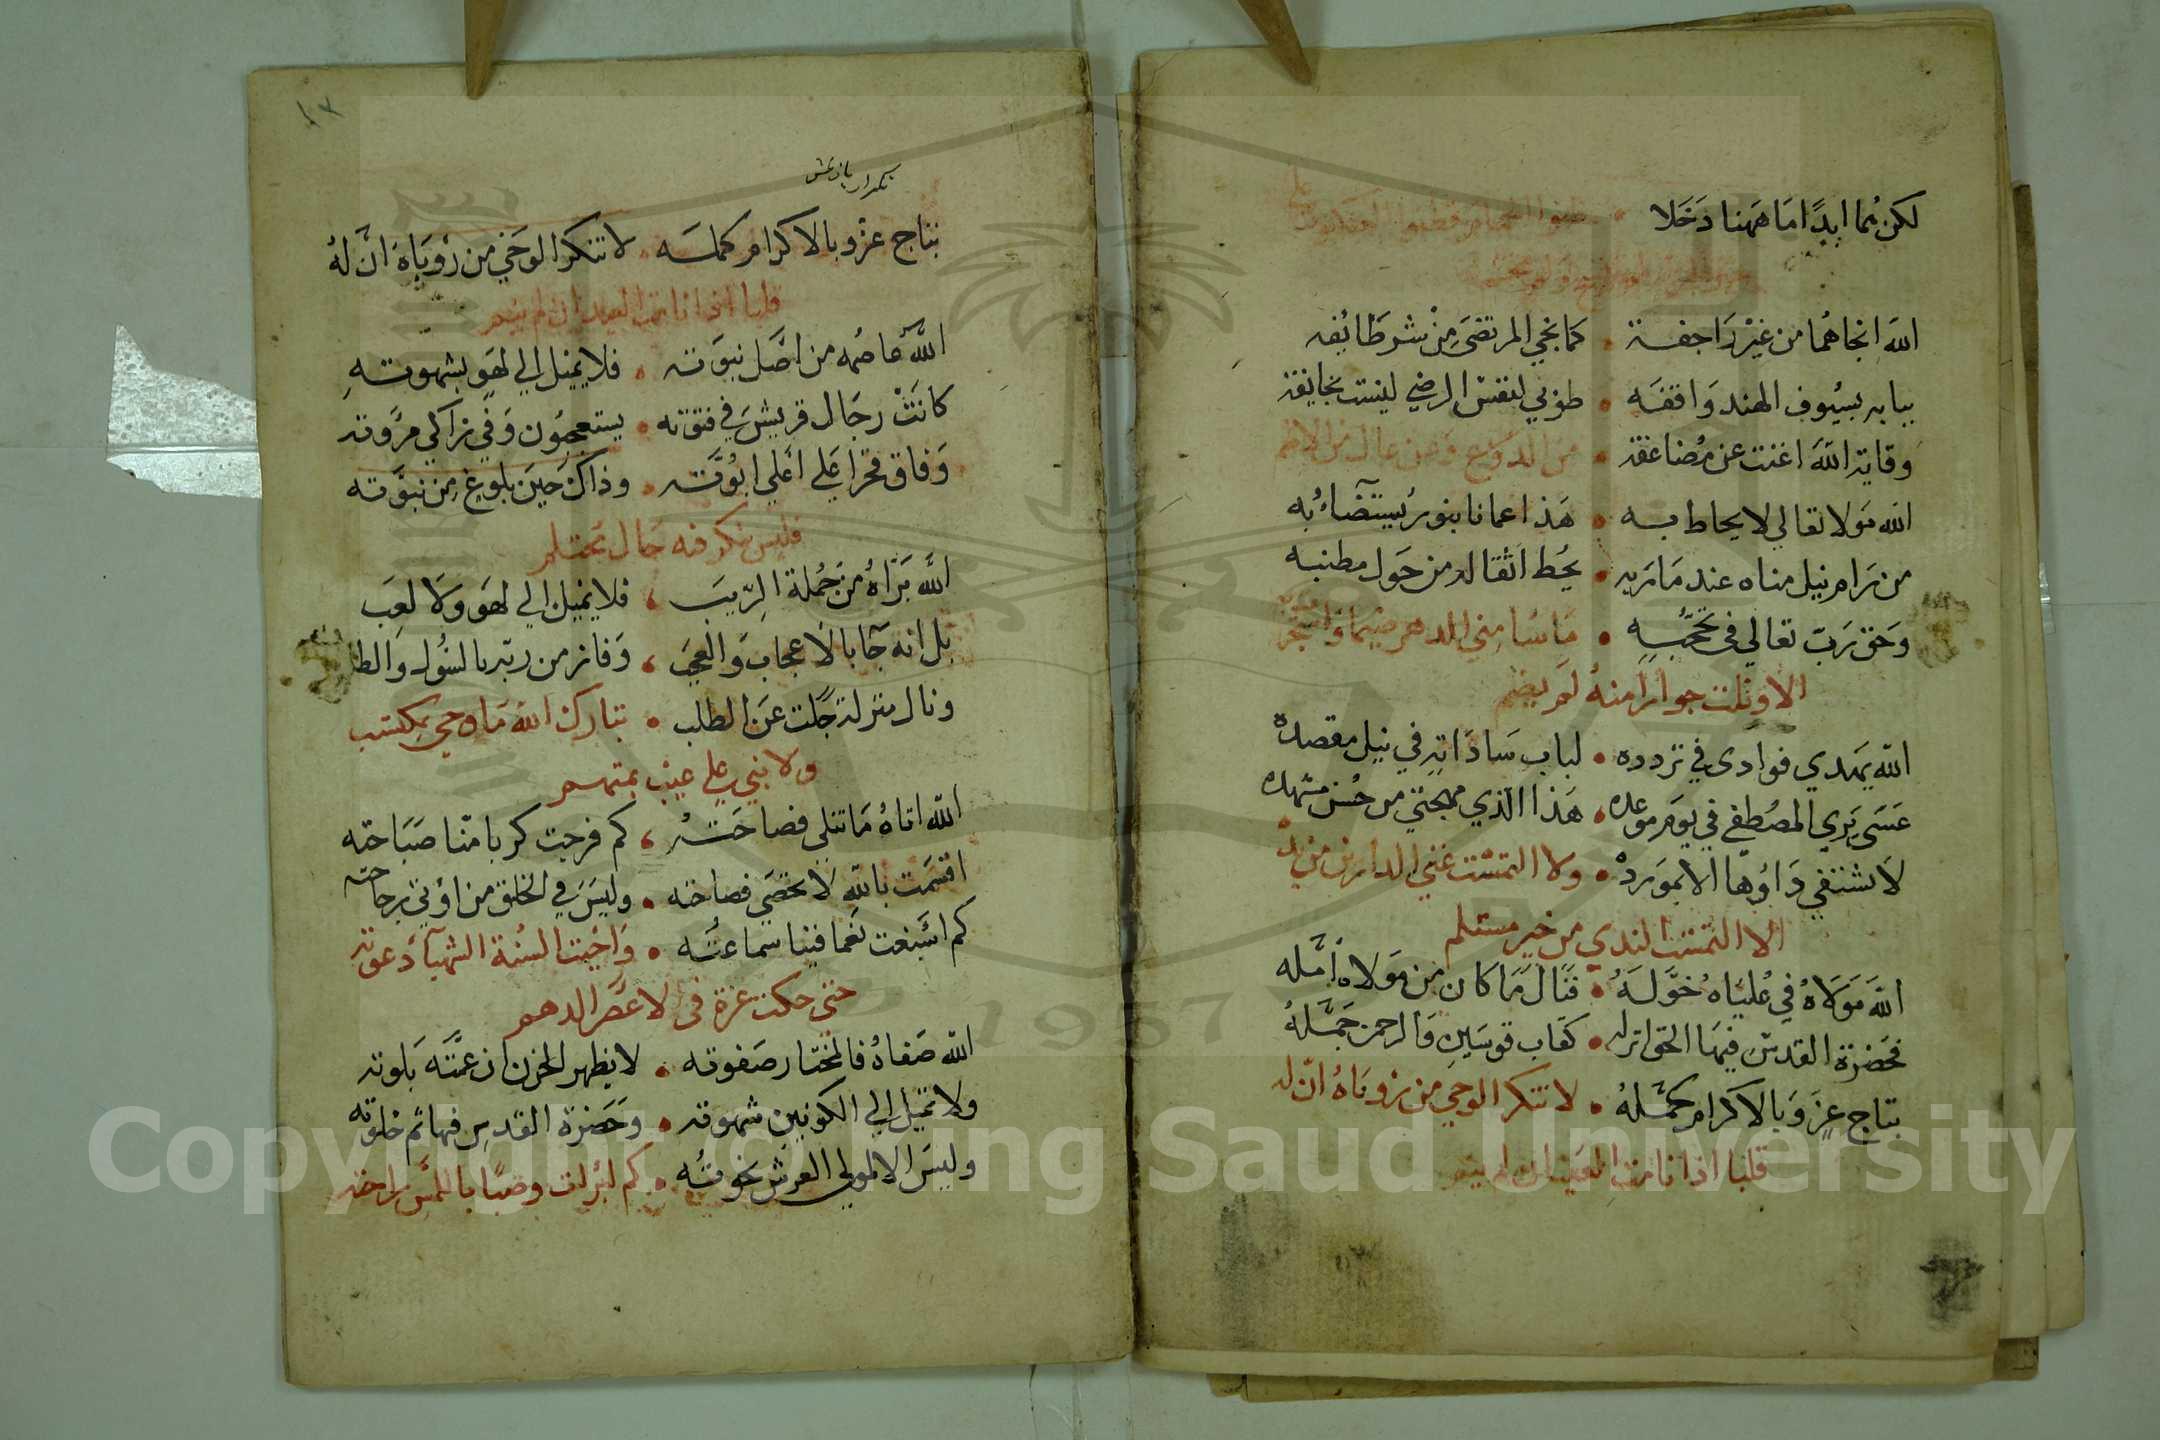 لكن هما ابدًا ما همنا دَخَلا • ظنوا الحمام وظنوا العنكبوت على
خير البرية لم تنسج ولم تحم
اللهَ انجاهُما من غيْر رَاجفة • كما نجي المرتضَى مِنْ شر طَائفه
ببابه بسيُوف الهند وَاقفَه • طوبي لنفسْ الرضي ليست بخايفة
وقاية اللهَ اغنت عن مُضاعفة • من الدروع وعن عال من الاطم
الله مَولا تعالي لا يحاط به • هَذا عمانا بنورُ يستَضَاءُ به
من رَام نيل مناه عند مَاربه • يحُط اَثقاله من حَول مطنبه
وَحق رَبّ تعالي فى تحَجّبهِ • مَا سَامني الدهر ضيما واستجرت به
الا ونلت جوارًا منهُ لم يضم
اللهَ يَهدي فوادى في تردده • لباب سَادَاته في نيل مقصده
عَسَى يَري المصُطفي في يوَم موعده • هَذا الذي مهجتي من حُسْن مشهده
لاَ يشتفي دَاؤهَا الا بموَردهْ • ولا التمسْت غني الدارين من يده
الا التمست الندي من خير مستلم
اللهَ مَوَلاهُ في عُليَاه خوَّلَهُ • فنَالَ مَا كان من مَولاه اَمَّله
فحَضرة القدسْ فيهَا الحق انزله • كقاب قوسَين وَالرحمن جَمَّلهُ
بتاج عِزّ وَبالاكرام كمَّلهُ • لا تنكر الوحي من رؤياهُ انّ له
قلبا اذا نامت العينان لم ينم
١٣
تكرار
بتاج عزْو بالاكرام كمله • لا تنكر الوحَي من رُؤيَاهُ انَّ لهُ
قلبا اذا نامت العينان لم ينم
اللَّهَ عَاصمه من اصَّل نبوَته • فلا يميل الي لهَوٍ بشهوتهِ
كانَتْ رجَال قريشَ في فتوته • يستعجبُون وَفي زاكي مرَّوته
وَفاق فخرا عَلي اَعلي ابُوَّته • وذاك حَينَ بلوغ مِن نبوَّته
فليس ينكر فيه حَال محتلم
اللَّه بَرَّاهُ من جَمُلة الرِّيبَ • فلا يميل الي لهَو وَلا لعِبَ
بل انه جَآ بالاَعجاب وَالعجَبَ • وَفاز من ربّه بالسُول وَالطلب
ونال منزلة جَلت عَن الطلب • تبارك اللهَ مَا وحي بمكتسب
ولا نبي علي غيب بمتهم
اللهَ اتاهُ مَا تتلى فصاحَتهْ • كم فرجت كربا منّا صَبَاحته
اقسَمت بالله لاَ تحصَي فصاحته • وليسَ في الخلق من اوُتي رجاحته
كم اسَبغت نعَما فينا سماعتُه • وَاحيَت السُنة الشهبَآ دَعوته
حتى حكت غرة في الاعصَر الدهم
اللهَ صَفاهُ فالمختار صَفوته • لا يظهر الحزن ان عمَّته بَلوته
ولا تميل الي الكونين شهوته • وَحَضرة القدس فيها ثم خلوته
وليسَ الا لمولي العرشْ نخوتُه • كم ابرات وصبًا باللمَس راحته